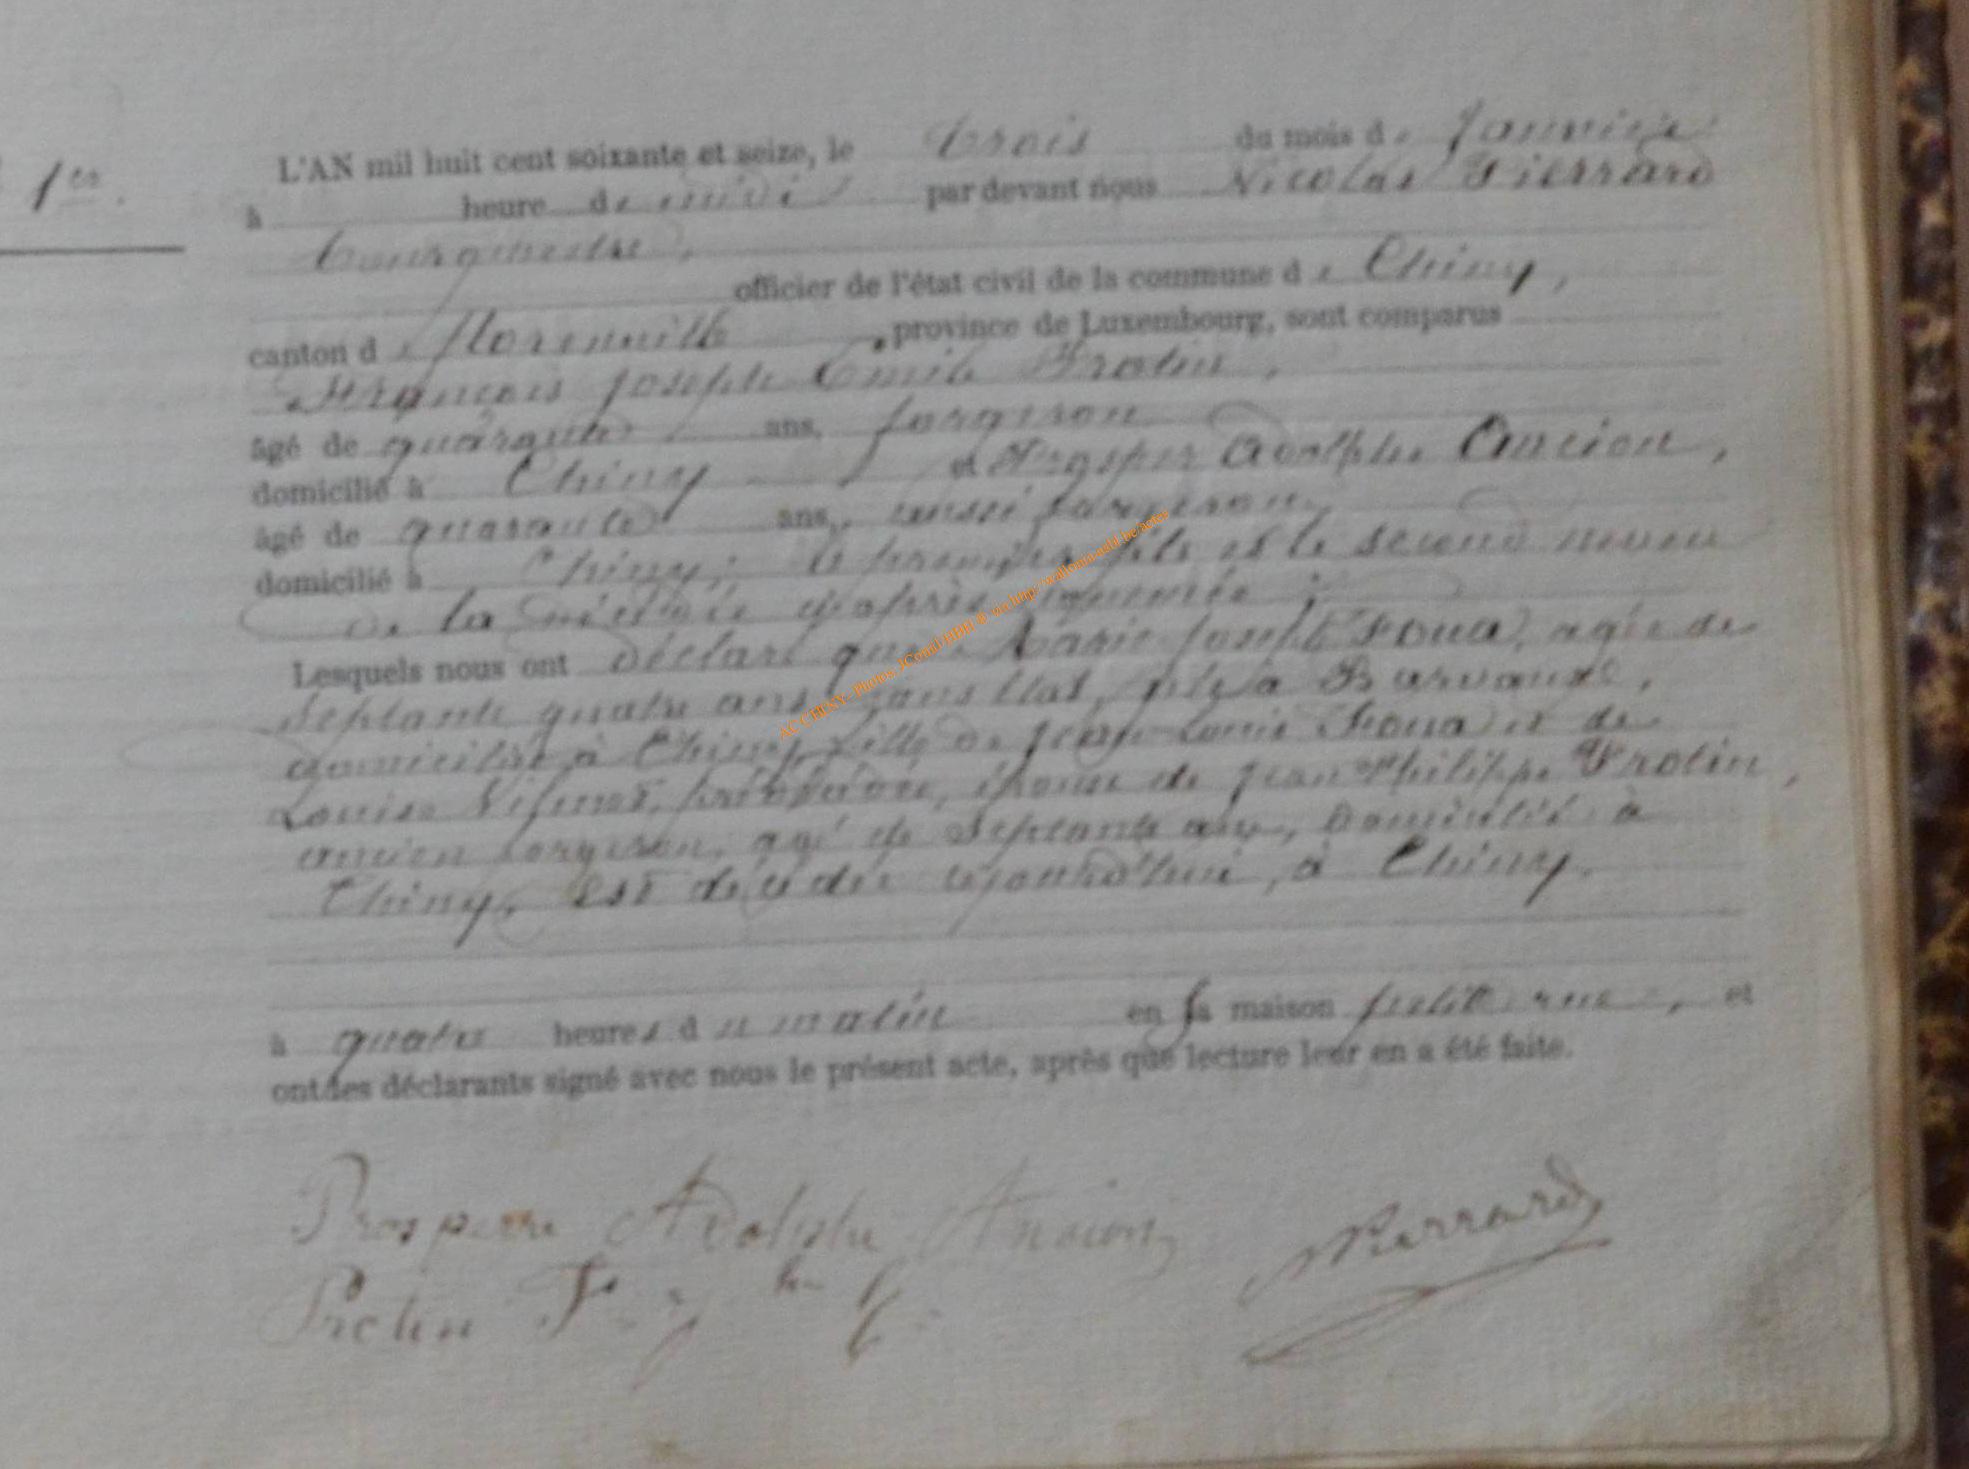 1er.
L'AN mil huit cent soixante et seize, le trois du mois de Janvier
à heure de midi par devant nous Nicolas Pierrard
bourgmestre,
officier de l'état civil de la commune de Chiny,
canton de Florenville, province de Luxembourg, sont comparus
François Joseph Emile Protin,
âgé de quarante ans, forgeron
domicilié à Chiny et Prosper Adolphe Ancion,
âgé de quarante ans, aussi forgeron,
domicilié à Chiny; le premier fils et le second neveu
de la décédée ci-après nommée :
Lesquels nous ont déclaré que Marie Joseph, agée de
septante quatre ans, sans état, née à Barvaux,
domiciliée à Chiny, fille de Jean Louis et de
Louise, épouse de Jean Philippe Protin,
ancien forgeron, agé de septante ans, domicilié à
Chiny, est décédée aujourd'hui, à Chiny,
à quatre heures du matin en sa maison petite rue, et
ont les déclarants signé avec nous le présent acte, après que lecture leur en a été faite.
Prosper Adolphe Ancion
NPierrard
Protin F. j
AC CHINY- Photos JConul-HBH © via http://wallonia-asbl.be/actes